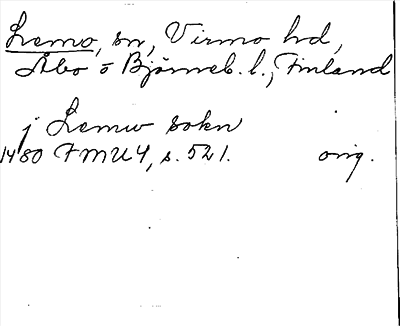 Lemo, sn, Virmo hd,
Åbo o Björneb. l., Finland
j Lemw sokn
1480 FMU 4, s. 521. orig.